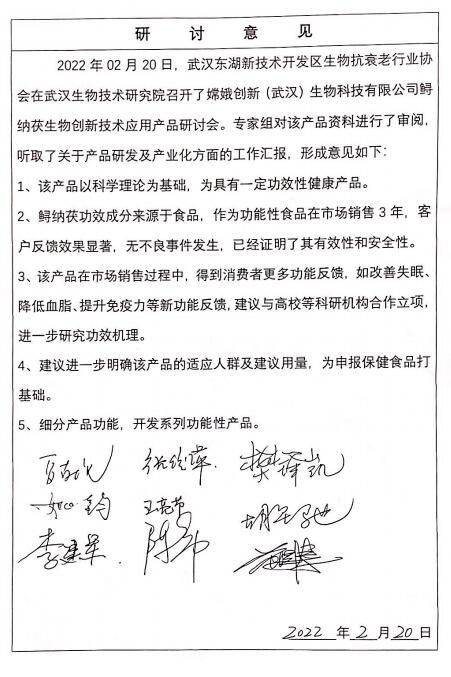 研讨意见
2022年02月20日，武汉东湖新技术开发区生物抗衰老行业协
会在武汉生物技术研究院召开了嫦娥创新（武汉）生物科技有限公司鲟
纳茯生物创新技术应用产品研讨会。专家组对该产品资料进行了审阅，
听取了关于产品研发及产业化方面的工作汇报，形成意见如下：
1、该产品以科学理论为基础，为具有一定功效性健康产品。
2、鲟纳茯功效成分来源于食品，作为功能性食品在市场销售3年，客
户反馈效果显著，无不良事件发生，已经证明了其有效性和安全性。
3、该产品在市场销售过程中，得到消费者更多功能反馈，如改善失眠、
降低血脂、提升免疫力等新功能反馈，建议与高校等科研机构合作立项，
进一步研究功效机理。
4、建议进一步明确该产品的适应人群及建议用量，为申报保健食品打
基础。
5、细分产品功能，开发系列功能性产品。
2022年2月20日